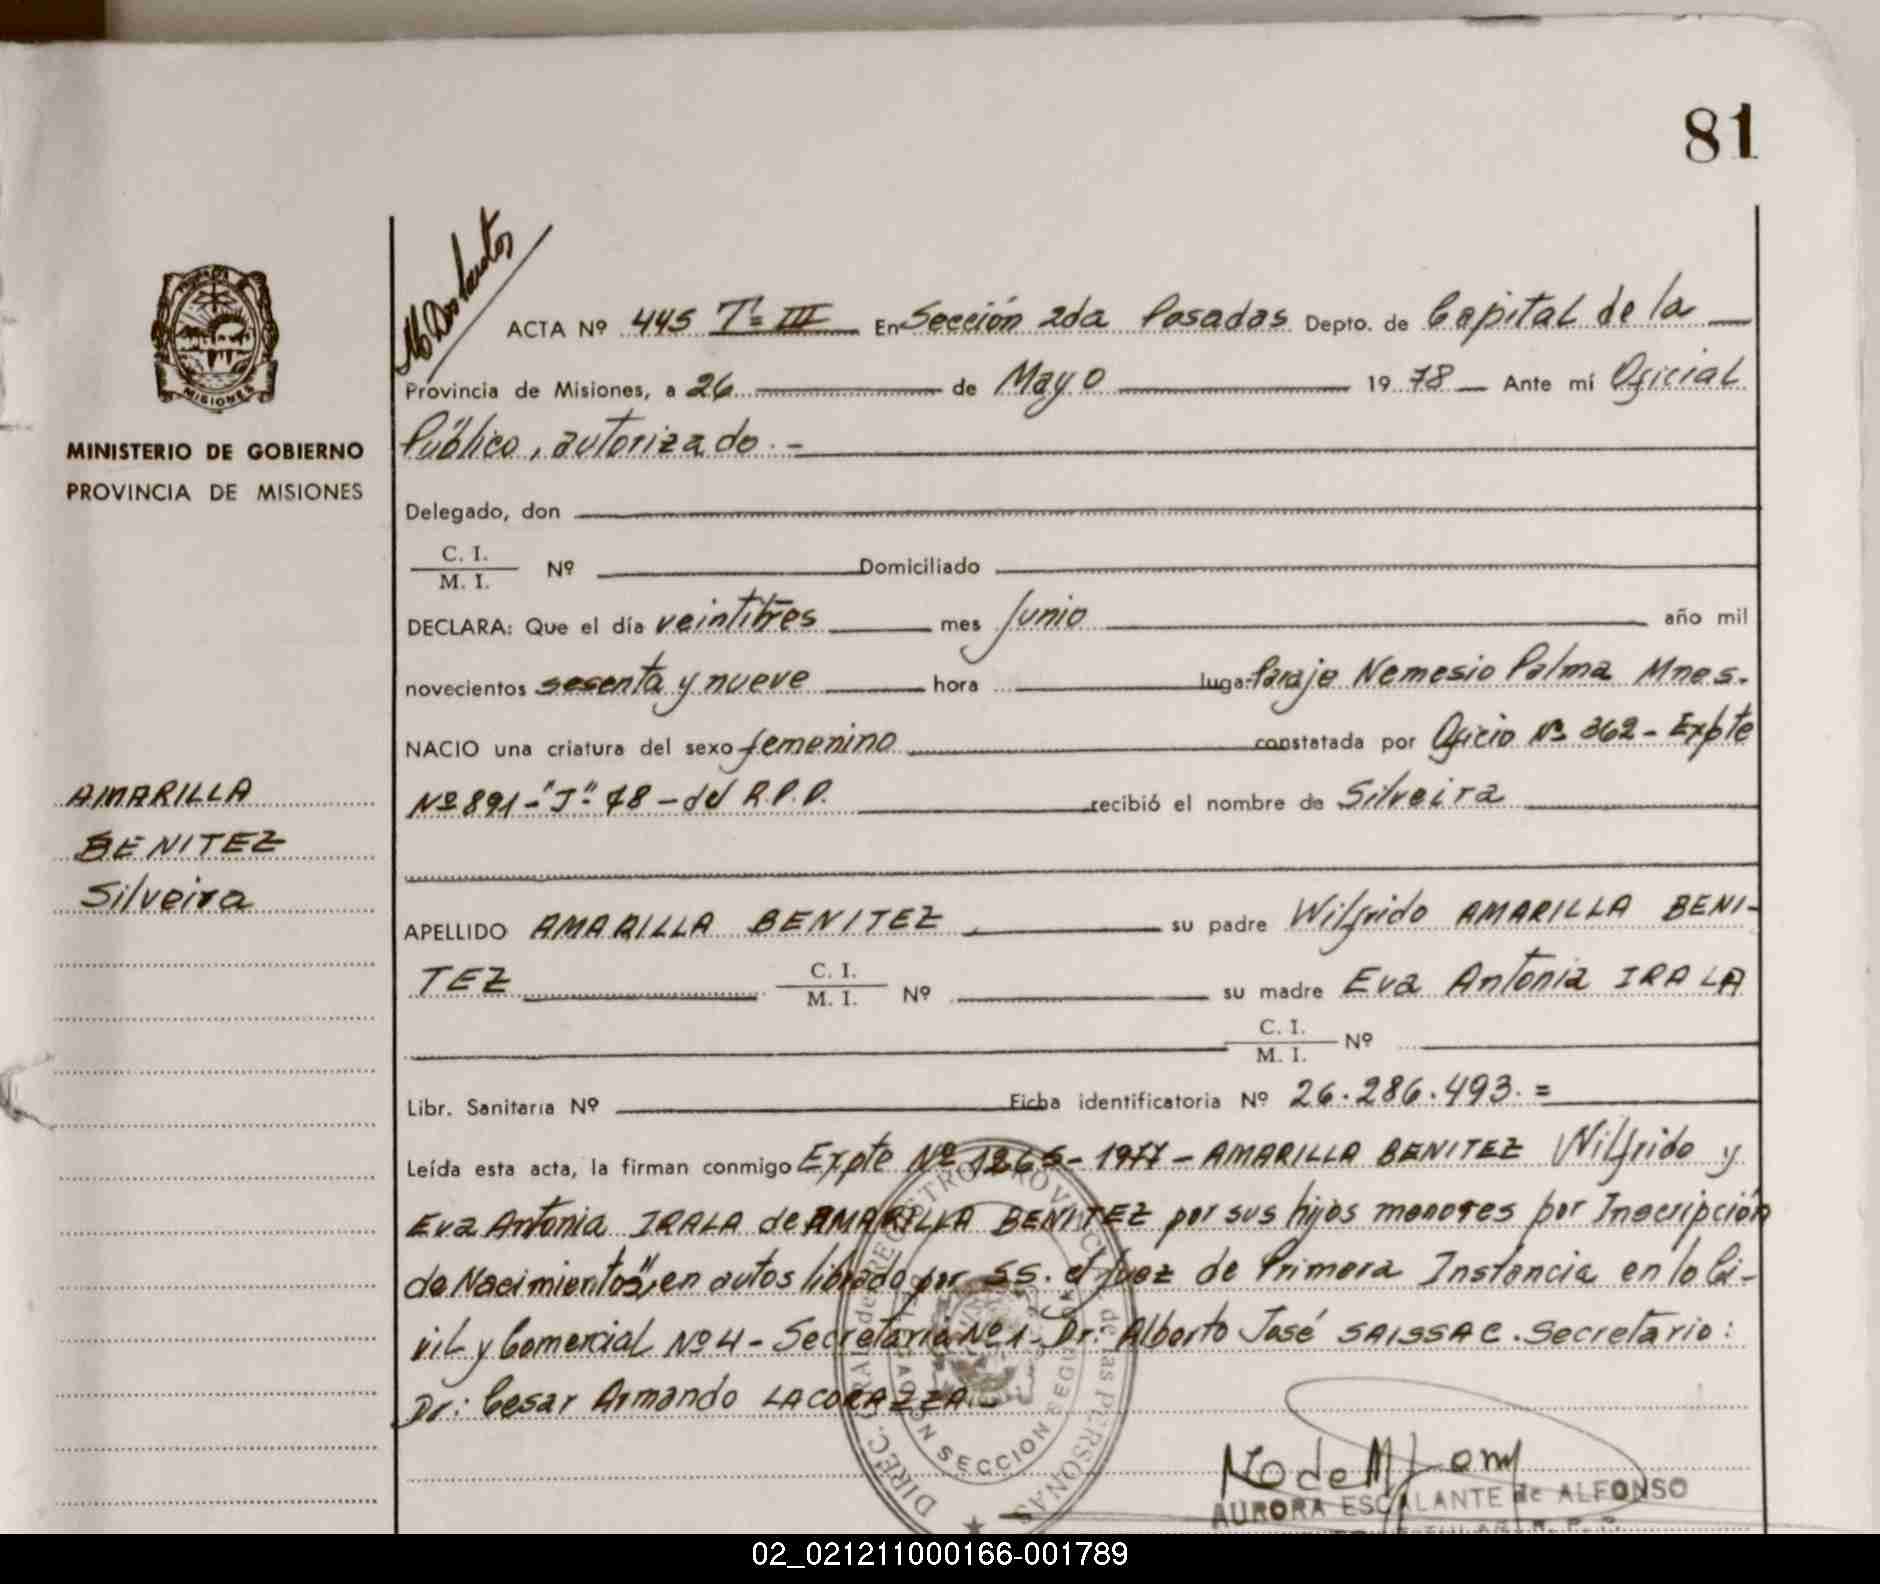 81
M Dos Santos
ACTA Nº 445 Tº III En Sección 2da Posadas Depto. de Capital de la
Provincia de Misiones, a 26 de Mayo 19 78 Ante mí Oficial
Público, autorizado.-
MISIONES
MINISTERIO DE GOBIERNO
PROVINCIA DE MISIONES
Delegado, don
C. I.
M. I. Nº Domiciliado
DECLARA: Que el día veintitres mes Junio año mil
novecientos sesenta y nueve hora lugar Paraje Nemesio Palma Mnes.
NACIO una criatura del sexo femenino constatada por Oficio Nº 362 - Expte
Nº 891-"J"-78-del R.P.P. recibió el nombre de Silveira
AMARILLA
BENITEZ
Silveira
APELLIDO AMARILLA BENITEZ su padre Wilfrido AMARILLA BENI-
TEZ C. I.
M. I. Nº su madre Eva Antonia IRALA
C. I.
M. I. Nº
Libr. Sanitaria Nº Ficha identificatoria Nº 26.286.493.=
Leída esta acta, la firman conmigo Expte Nº 1265-1977-AMARILLA BENITEZ Wilfrido y
Eva Antonia IRALA de AMARILLA BENITEZ por sus hijos menores por Inscripción
de Nacimientos", en autos librado por SS. el Juez de Primera Instancia en lo Ci-
vil y Comercial Nº 4 - Secretaría Nº 1 - Dr: Alberto José SAISSAC. Secretario:
Dr: Cesar Armando LACORAZZA.-
DIREC. GRAL de REGISTRO PROVINCIAL de las PERSONAS
SECCION SEGUNDA
AURORA ESCALANTE de ALFONSO
02_021211000166-001789